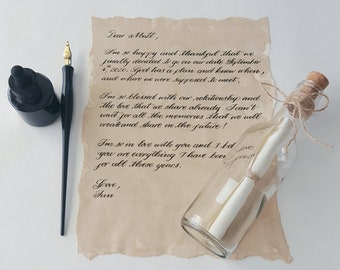 Dear Matt,
I'm so happy and thankful that we
finally decided to go on our date September
4, 2020. God has a plan and knew when,
and where we were supposed to meet.
I'm so blessed with our relationship and
the love that we share already. I can't
wait for all the memories that we will
create and share in the future!
I'm so in love with you and I
you are everything I have been
for all these years.
Love,